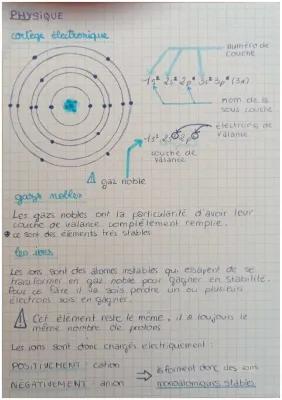 PHYSIQUE
cortège électronique
numéro de
couche
1s² 2s² 2p⁶ 3s² 3p⁶ (3d)
nom de la
sous couche
électrons de
valance
1s² 2s² 2p⁶
couche de
valance
gaz noble
gazs nobles
Les gazs nobles ont la particularité d'avoir leur
couche de valance complètement remplie.
ce sont des éléments très stables
les ions
Les ions sont des atomes instables qui essayent de se
transformer en gaz noble pour gagner en stabilité.
Pour ce faire il va sois perdre un ou plusieurs
électrons sois en gagner.
Cet élément reste le même, il a toujours le
même nombre de protons
Les ions sont donc chargés électriquement :
POSITIVEMENT : cation
NÉGATIVEMENT : anion
ils forment donc des ions
monoatomiques stables